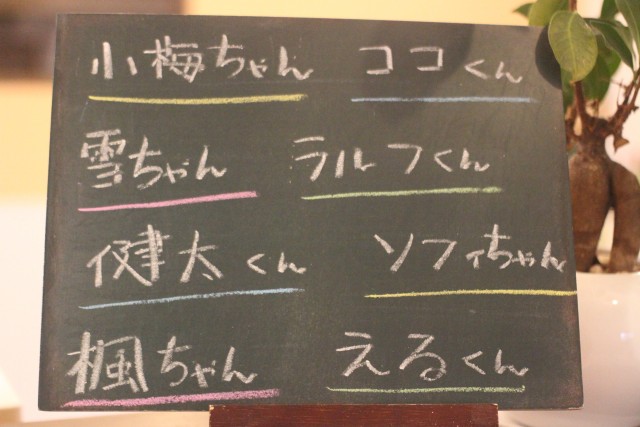 小梅ちゃん ココくん
雪ちゃん ラルフくん
健太くん ソフィちゃん
楓ちゃん えるくん